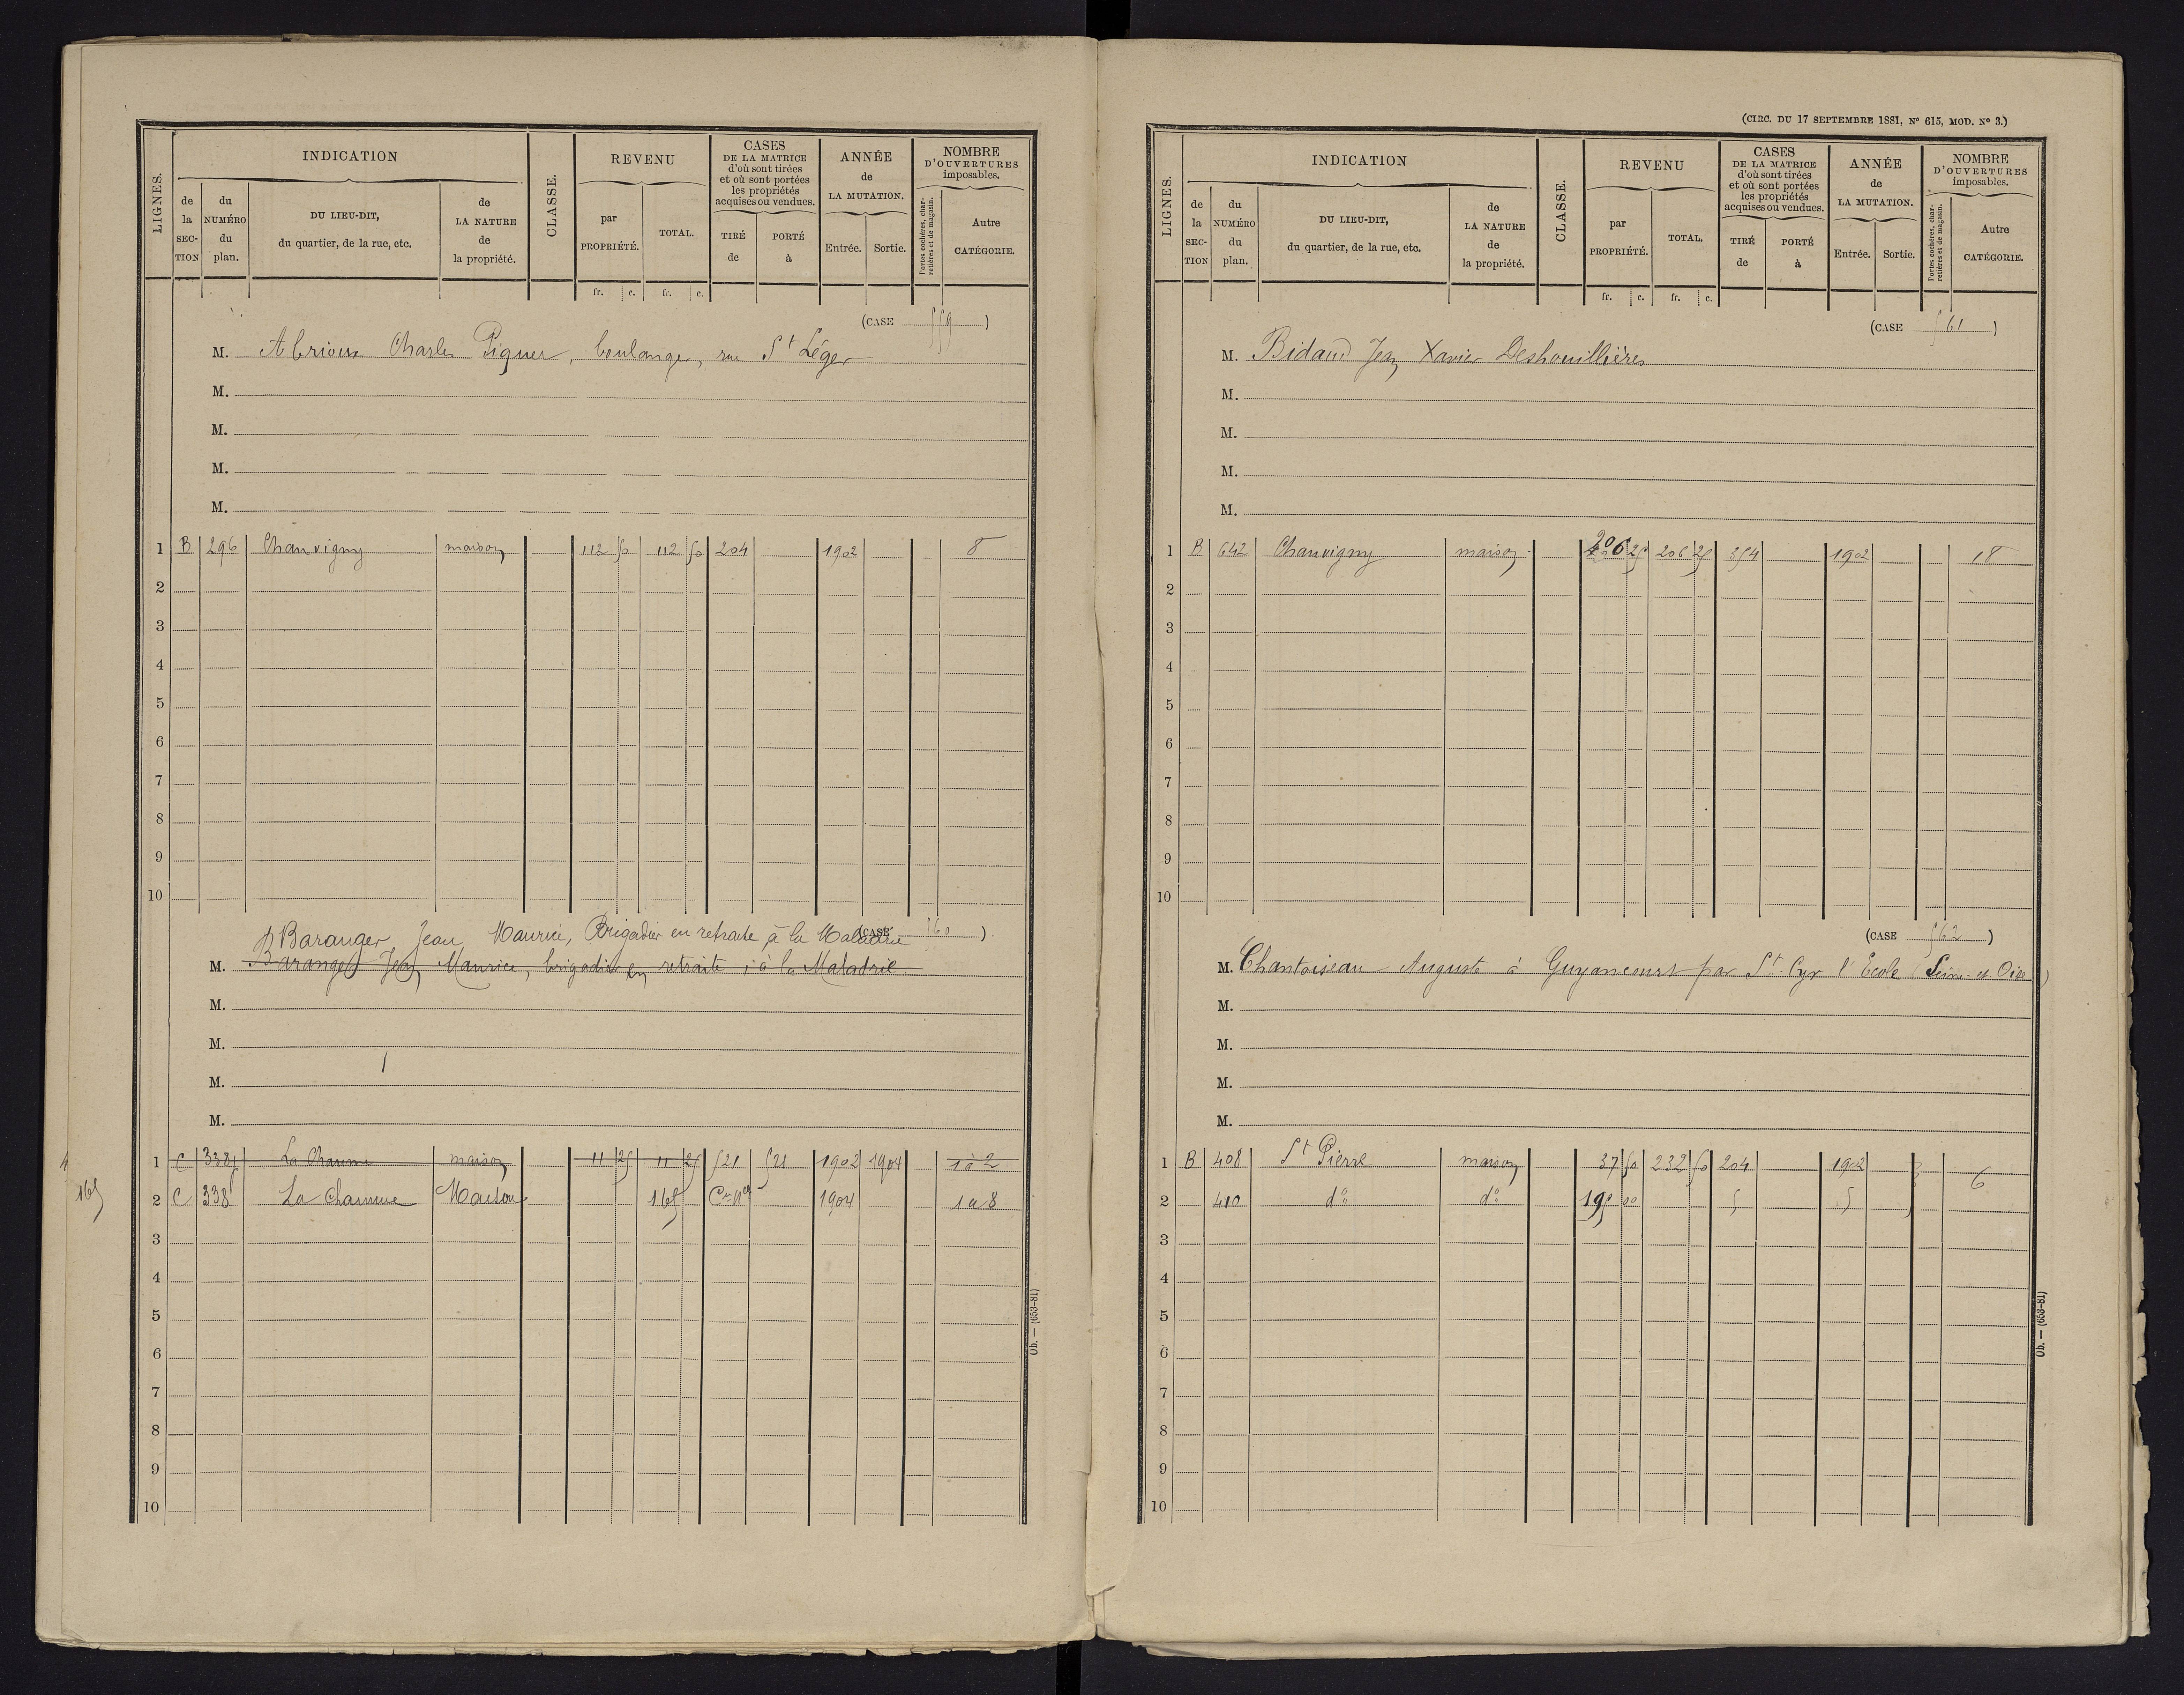 LIGNES.
INDICATION
de la SECTION
du NUMÉRO du plan.
DU LIEU-DIT, du quartier, de la rue, etc.
de LA NATURE de la propriété.
CLASSE.
REVENU
par PROPRIÉTÉ.
TOTAL.
CASES DE LA MATRICE d'où sont tirées et où sont portées les propriétés acquises ou vendues.
TIRÉ de
PORTÉ à
ANNÉE de LA MUTATION.
Entrée.
Sortie.
NOMBRE D'OUVERTURES imposables.
Portes cochères, charretières et de magasin.
Autre CATÉGORIE.
fr. c. fr. c.
(CASE 559)
M. Abrioux Charles Piquer, boulanger, rue St Léger
M.
M.
M.
M.
1 B 296 Chauvigny maison 112 50 112 50 204 1902 8
2
3
4
5
6
7
8
9
10
(CASE 560)
Baranger, Jean Maurice, Brigadier en retraite à la Maladrie
M. Baranger Jean Maurice, brigadier en retraite, à la Maladrie
M.
M.
M.
M.
1 C 338 La Chaume maison 11 25 11 25 521 521 1902 1904 1 à 2
165
2 C 338 La Chaume Maison 165 Con nel 1904 1 a 8
3
4
5
6
7
8
9
10
Ob. — (653-81)
(CIRC. DU 17 SEPTEMBRE 1881, No 615, MOD. No 3.)
LIGNES.
INDICATION
de la SECTION
du NUMÉRO du plan.
DU LIEU-DIT, du quartier, de la rue, etc.
de LA NATURE de la propriété.
CLASSE.
REVENU
par PROPRIÉTÉ.
TOTAL.
CASES DE LA MATRICE d'où sont tirées et où sont portées les propriétés acquises ou vendues.
TIRÉ de
PORTÉ à
ANNÉE de LA MUTATION.
Entrée.
Sortie.
NOMBRE D'OUVERTURES imposables.
Portes cochères, charretières et de magasin.
Autre CATÉGORIE.
fr. c. fr. c.
(CASE 561)
M. Bidaud Jean Xavier Deshouillières
M.
M.
M.
M.
1 B 642 Chauvigny maison 206 25 206 25 354 1902 18
2
3
4
5
6
7
8
9
10
(CASE 562)
M. Chantoiseau Auguste à Guyancourt par St Cyr l'Ecole (Seine-et-Oise)
M.
M.
M.
M.
1 B 408 St Pierre maison 37 50 232 50 204 1902 6
2 410 do do 195 00
3
4
5
6
7
8
9
10
Ob. — (653-81)